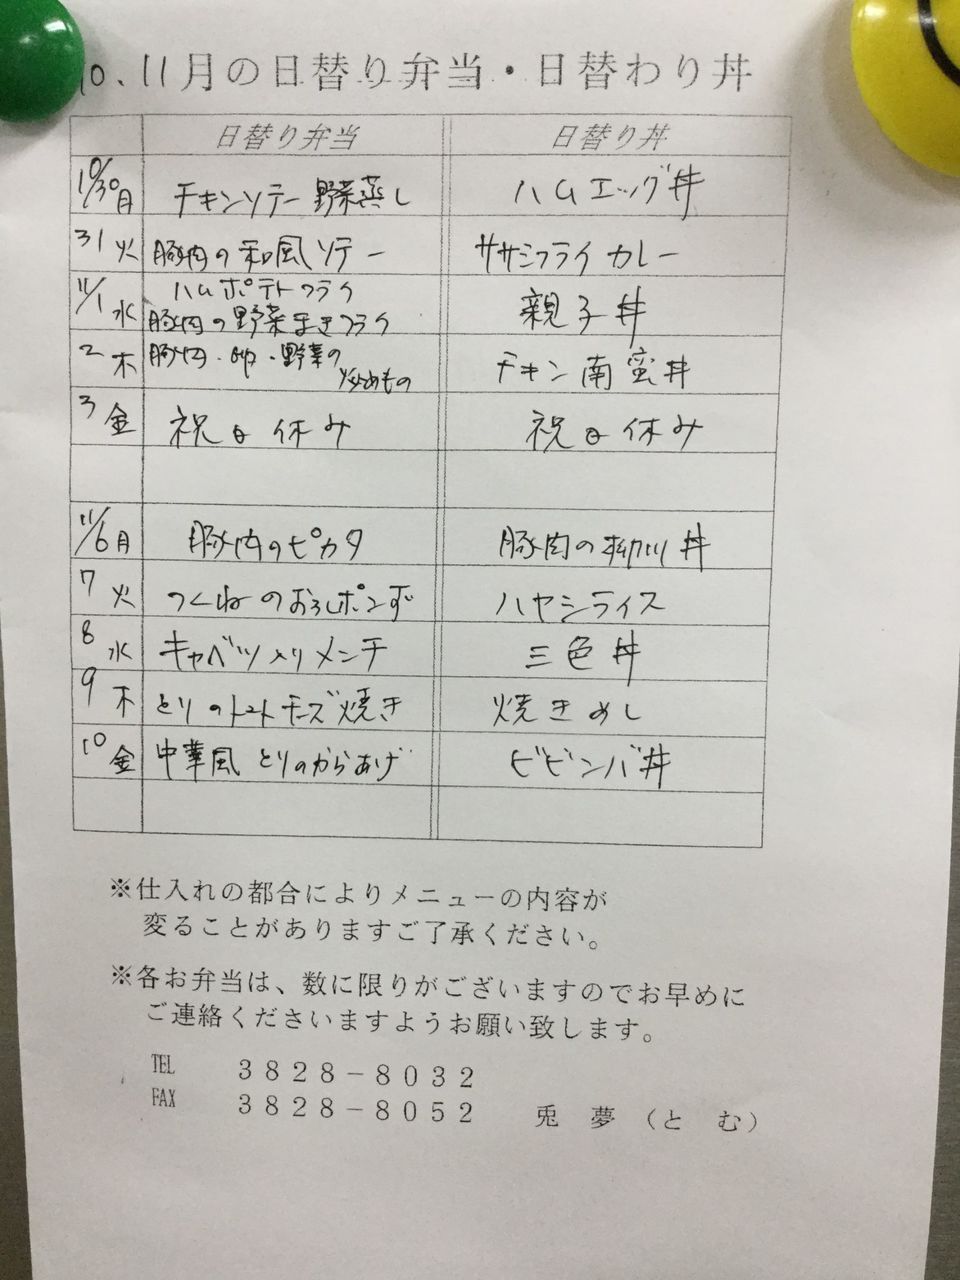 10、11月の日替り弁当・日替わり丼
日替り弁当 日替り丼
10/30月 チキンソテー 野菜蒸し ハムエッグ丼
31火 豚肉の和風ソテー ササミフライカレー
11/1水 ハムポテトフライ
豚肉の野菜まきフライ 親子丼
2木 豚肉・卵・野菜の
炒めもの チキン南蛮丼
3金 祝日休み 祝日休み
11/6月 豚肉のピカタ 豚肉の柳川丼
7火 つくねのおろしポンず ハヤシライス
8水 キャベツ入りメンチ 三色丼
9木 とりのトマトチーズ焼き 焼きめし
10金 中華風とりのからあげ ビビンバ丼
※仕入れの都合によりメニューの内容が
変ることがありますご了承ください。
※各お弁当は、数に限りがございますのでお早めに
ご連絡くださいますようお願い致します。
TEL 3828-8032
FAX 3828-8052 兎 夢 (と む)